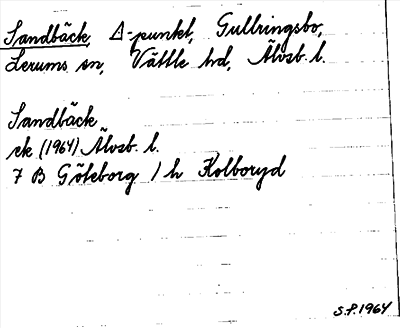 Sandbäck, Δ-punkt, Gullringsbo,
Lerums sn, Vättle hd, Älvsb. l.
Sandbäck
ek (1964) Älvsb. l.
7 B Göteborg 1 h Kolboryd
S.F. 1964